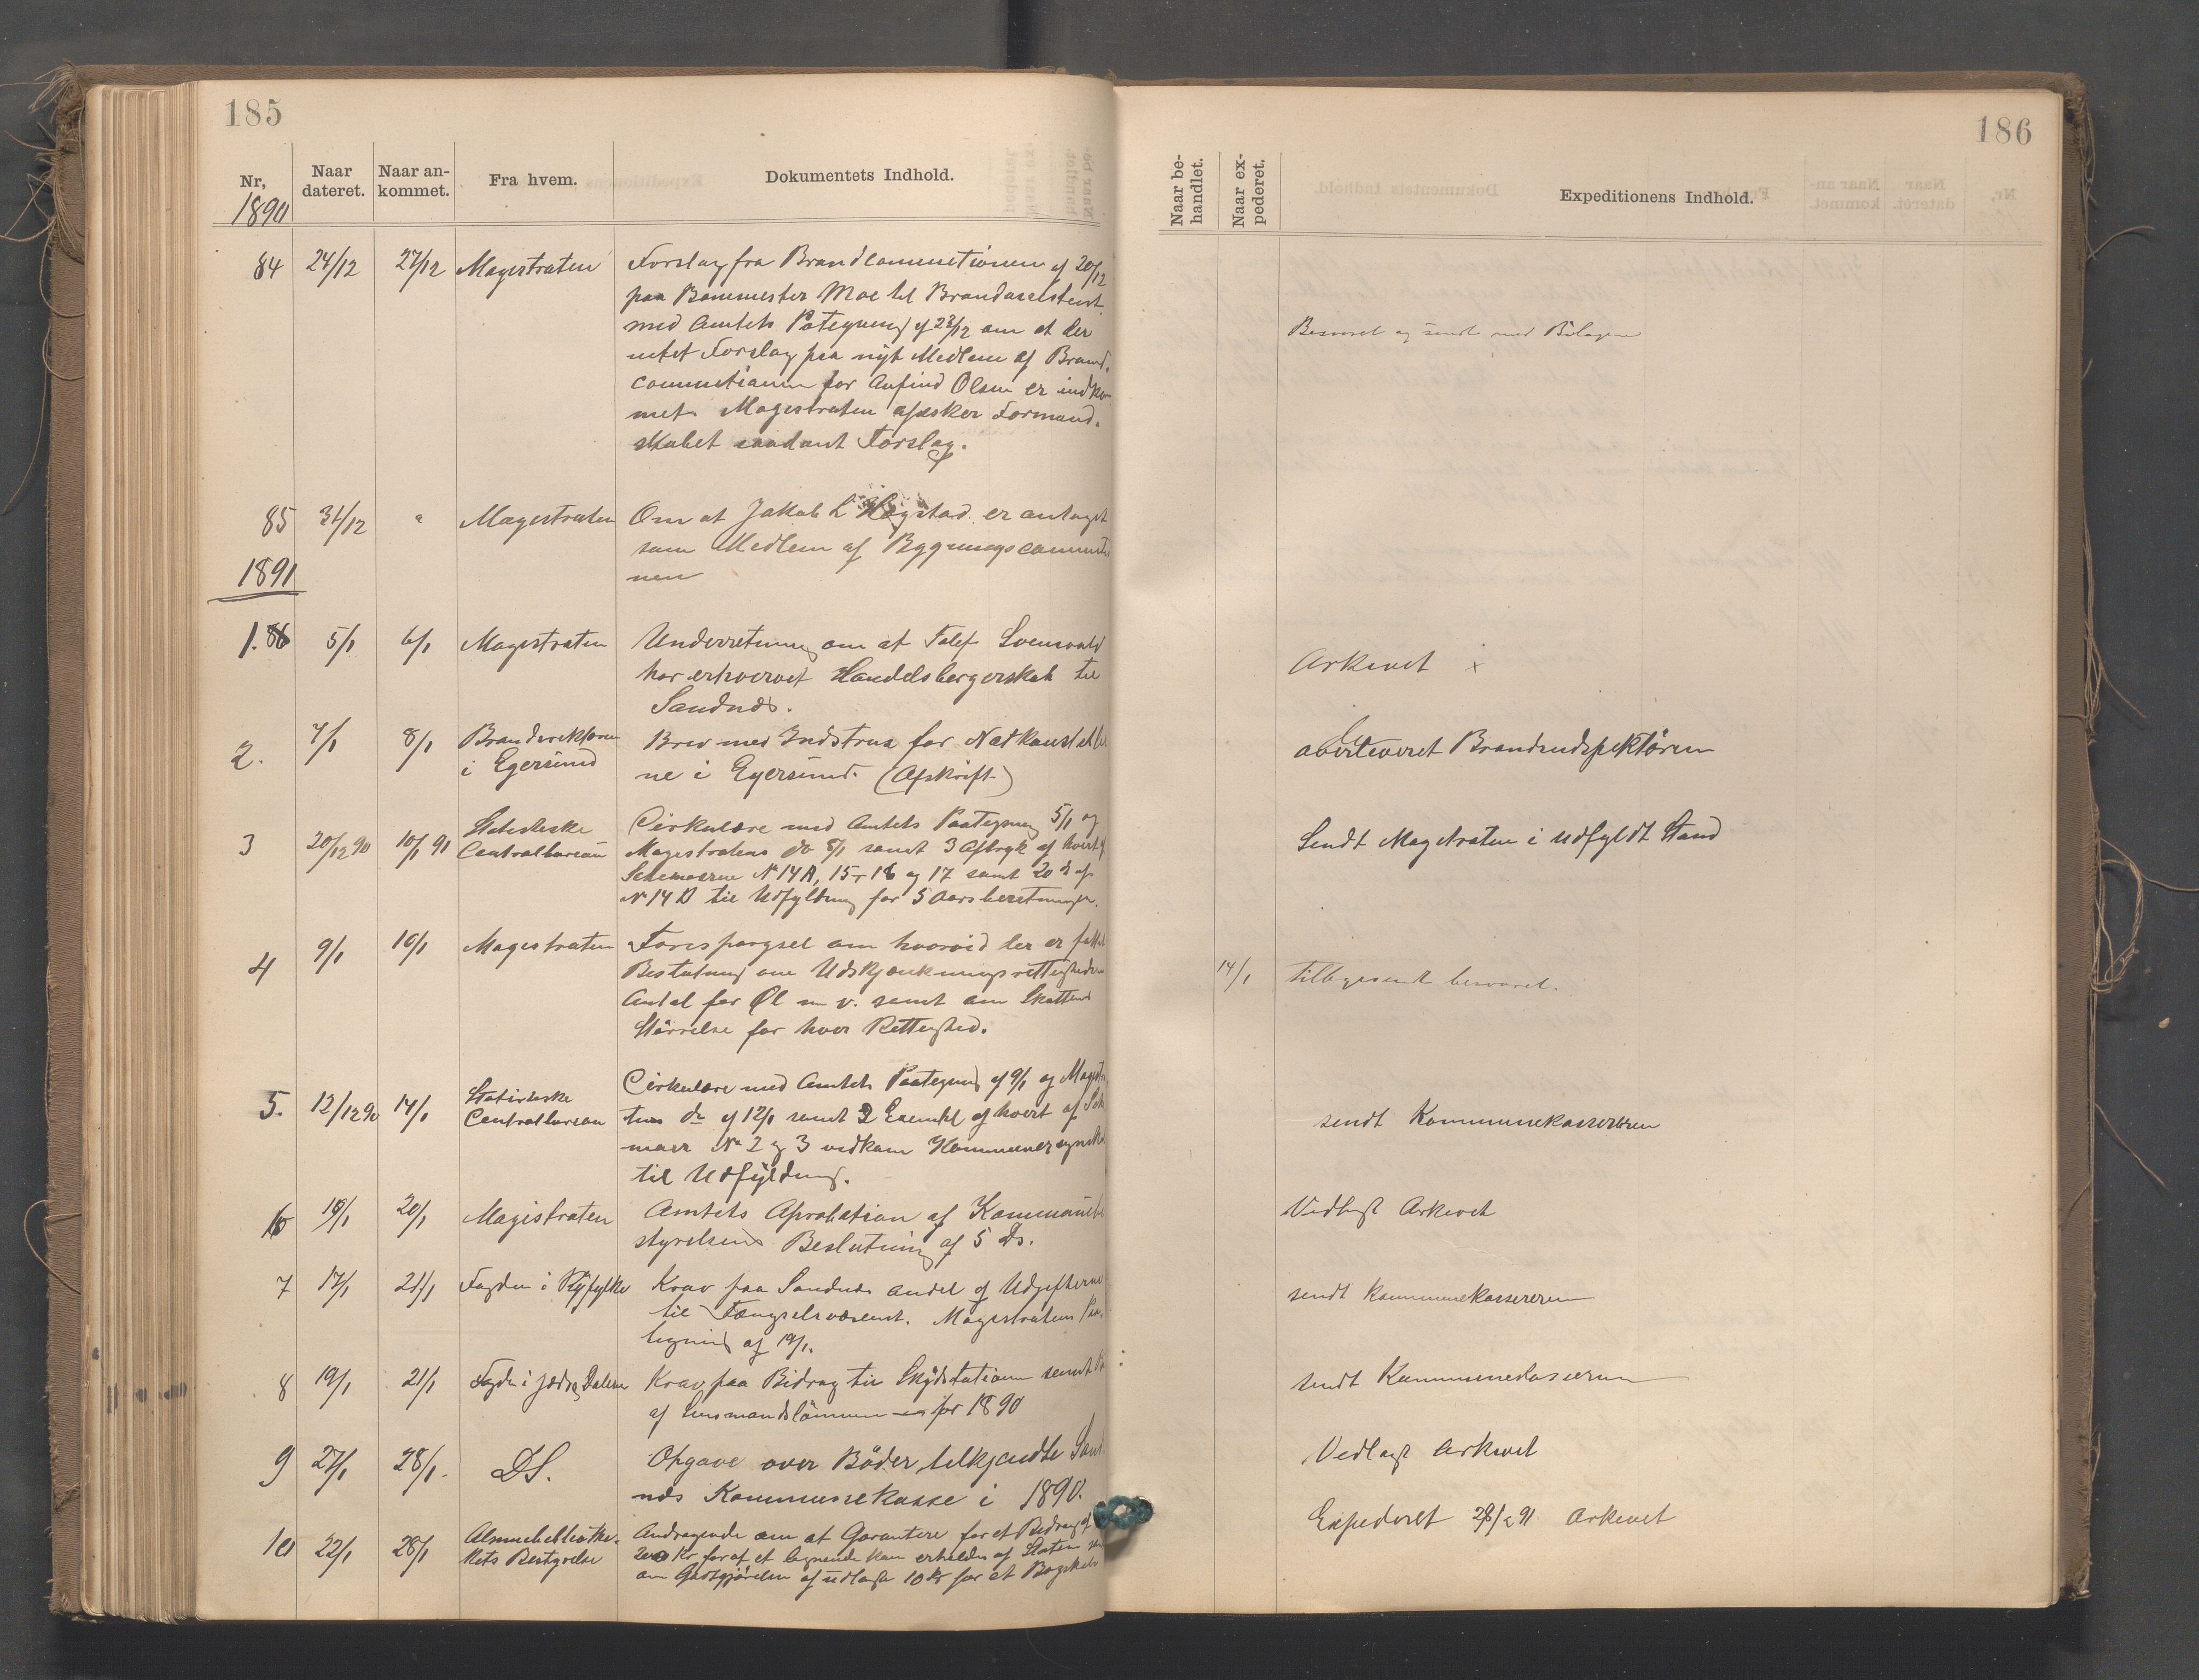 185
Nr,
Naar dateret.
Naar an-
kommet.
Fra hvem.
Dokumentets Indhold.
1890
84 24/12 27/12 Magistraten
Forslag fra Brandcommitionen af 20/12
paa Banemester Moe til Brandassistent
med Amtets Påtegning af 23/12 om at der
intet Forslag paa nyt Medlem af Brand-
commitionen for Anfind Olsen er indkom
met. Magistraten afæsker Formand-
skabet saadant Forslag.
85 31/12 " Magistraten
Om at Jakob L Høgstad er antaget
som Medlem af Bygningscommitio
nen
1891
1. 86 5/1 6/1 Magistraten
Underretning om at Tolef Svensvold
har erhvervet Handelsborgerskab til
Sandnæs.
2. 7/1 8/1 Branddirektøren
i Egersund
Brev med Indstrux for Natkonstabler
ne i Egersund. (Afskrift)
3 20/12 90 10/1 91 Statistiske
Centralbureau
Cirkulære med Amtets Paategning 5/1 og
Magistratens do 8/1 samt 3 Aftryk af hvert af
Schemaerne No 14A, 15, 16 og 17 samt 20 af
No 14 B til Udfyldning for 5 Aarsberetningen.
4 9/1 10/1 Magistraten
Forespørgsel om hvorvid der er fattet
Beslutning om Udskjænkningsrettigheders
Antal for Øl m v. samt om Skattens
Størrelse for hver Rettighed.
5. 12/12 90 14/1 Statistiske
Centralbureau
Cirkulære med Amtets Paategning af 9/1 og Magistra
tens do af 12/1 samt 2 Exempl af hvert af Sche
maer No 2 og 3 vedkom Kommuneregnskab
til Udfyldning.
6 19/1 20/1 Magistraten
Amtets Aprobation af Kommune
styrelsens Beslutning af 5 Ds.
7 17/1 21/1 Fogden i Ryfylke
Krav paa Sandnæs Andel af Udgifterne
til Fængselsvæsenet. Magistratens Paa-
tegning af 19/1.
8 19/1 21/1 Fogden i Jæd og Dalerne
Krav paa Bidrag til Skydsstationen samt
af Lensmandslønnen for 1890
9 27/1 28/1. DS.
Opgave over Bøder tilkjendte Sand
næs Kommunekasse i 1890.
10 22/1 28/1 Almuebibliothe-
kets Bestyrelse
Andragende om at Garantere for et Bidrag af
200 Kr foraf et lignende kan erholdes af Staten
om Godtgjørelse af udlagt 10 Kr for et Bogskab
186
Naar be-
handlet.
Naar ex-
pederet.
Expeditionens Indhold.
Besvaret og sendt med Bilagene
Arkivet x
averteret Brandindspektøren
Sendt Magistraten i udfyldt Stand
14/1 tilbagesendt besvaret.
sendt Kommunekassereren
Vedlagt Arkivet
sendt Kommunekassereren
sendt Kommunekassereren
Vedlagt Arkivet
Expederet 28/2 91 Arkivet